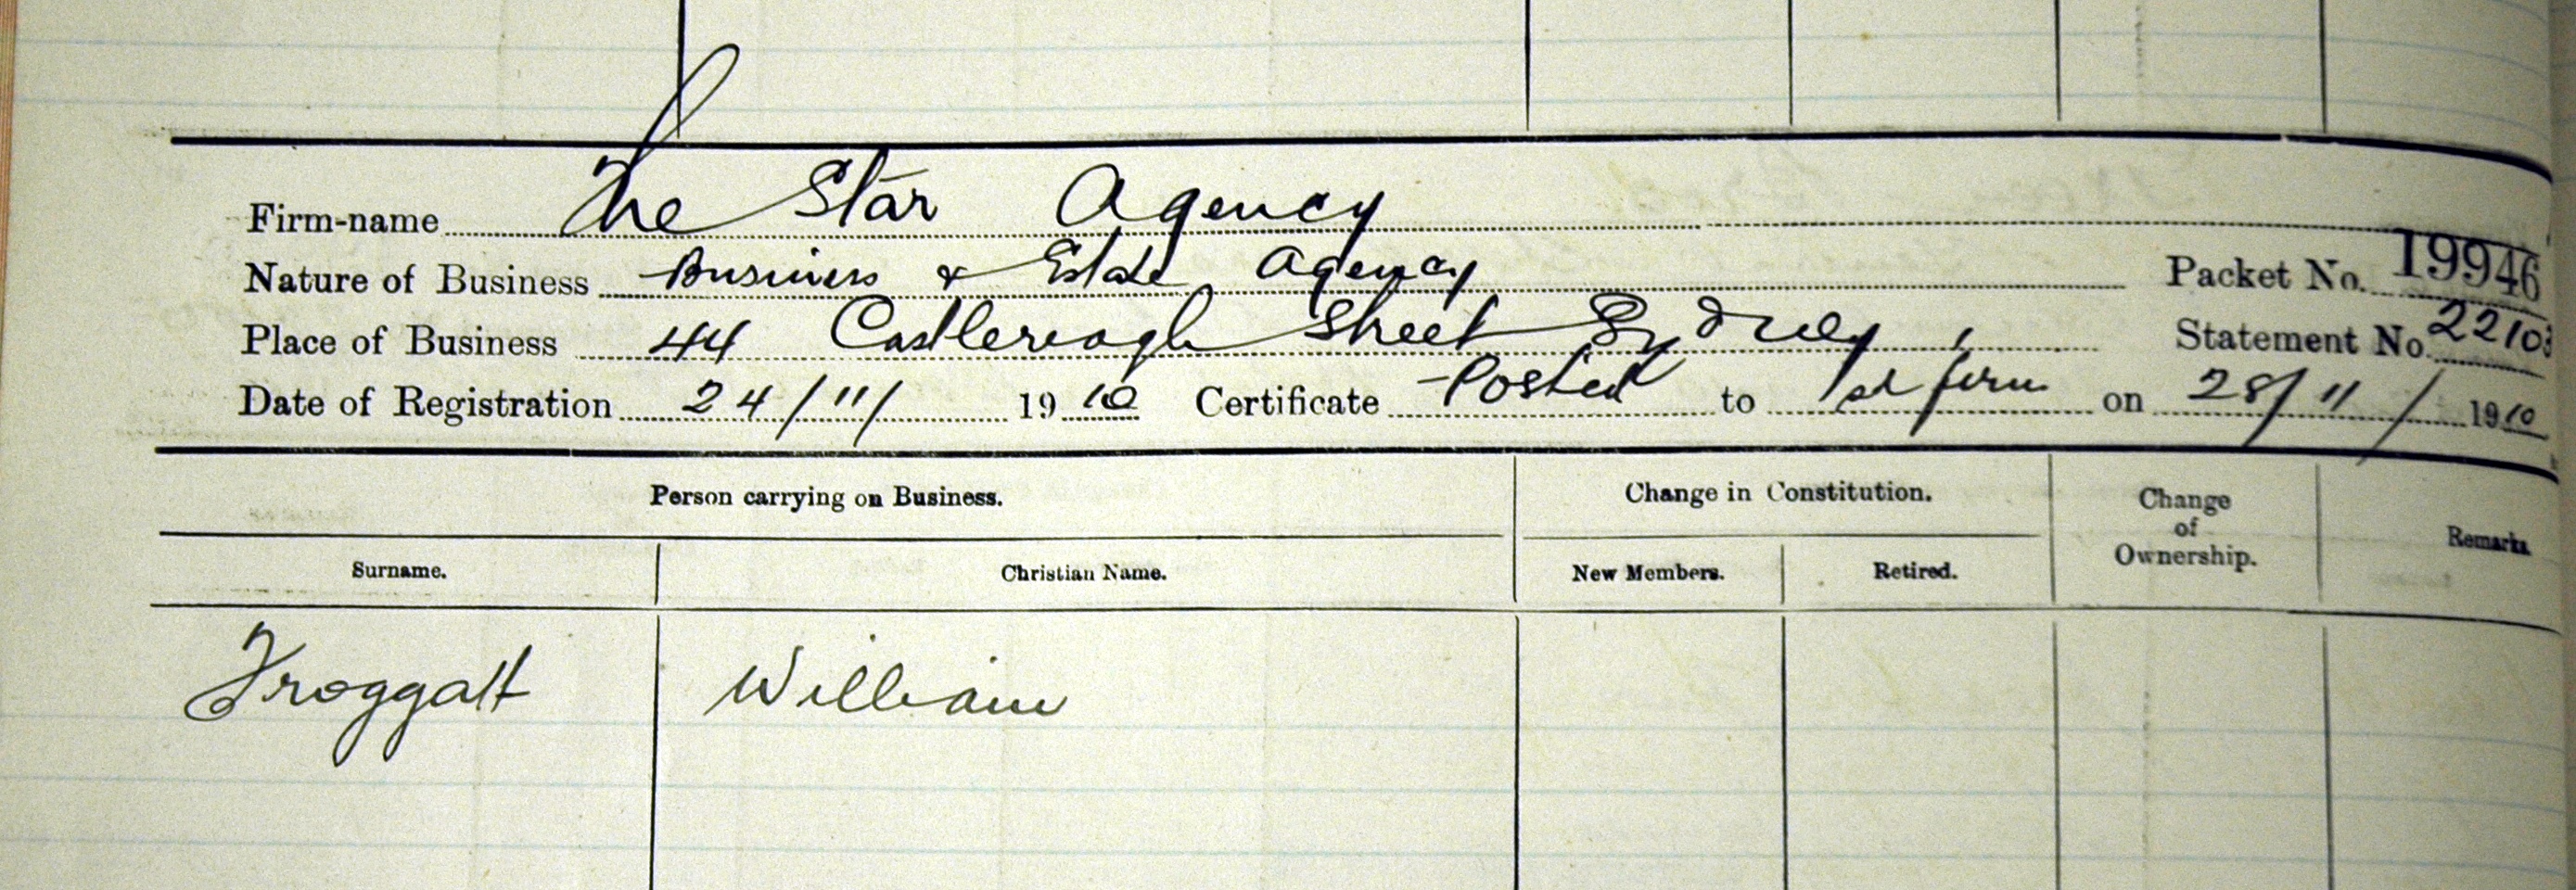 Firm-name The Star Agency
Nature of Business Business & Estate Agency Packet No. 19946
Place of Business 44 Castlereagh Street Sydney, Statement No. 22103
Date of Registration 24/11/ 1910 Certificate Posted to sd firm on 28/11/1910
Person carrying on Business. Change in Constitution. Change of Ownership. Remarks
Surname. Christian Name. New Members. Retired.
Froggatt William